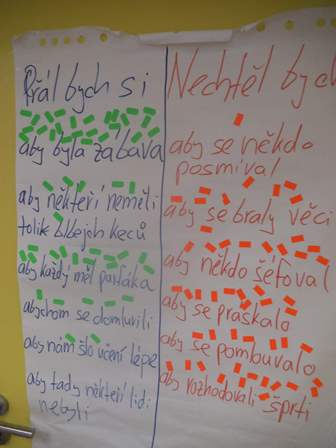 Přál bych si
aby byla zábava
aby někteří neměli
tolik blbejch keců
aby každý měl parťáka
abychom se domluvili
aby nám šlo učení lépe
aby tady někteří lidi
nebyli
Nechtěl bych
aby se někdo
posmíval
aby se braly věci
aby někdo šéfoval
aby se práskalo
aby se pombuvalo
aby rozhodovali šprti